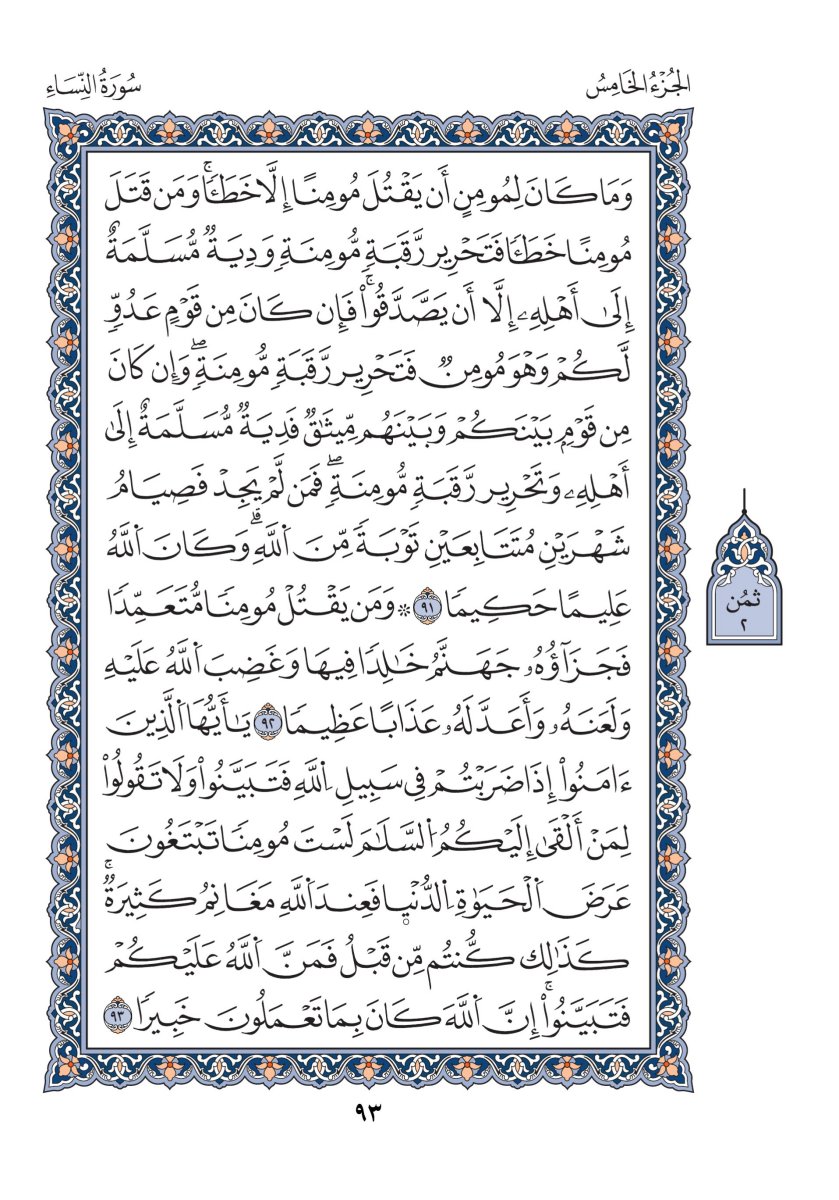 الجُزْءُ الخَامِسُ
سُورَةُ النِّسَاءِ
وَمَا كَانَ لِمُومِنٍ أَن يَقْتُلَ مُومِنًا إِلَّا خَطَـًٔاۚ وَمَن قَتَلَ
مُومِنًا خَطَـًٔا فَتَحْرِيرُ رَقَبَةٍ مُّومِنَةٍ وَدِيَةٌ مُّسَلَّمَةٌ
إِلَىٰ أَهْلِهِۦ إِلَّا أَن يَصَّدَّقُواْۚ فَإِن كَانَ مِن قَوْمٍ عَدُوٍّ
لَّكُمْ وَهْوَ مُومِنٌ فَتَحْرِيرُ رَقَبَةٍ مُّومِنَةٍۖ وَإِن كَانَ
مِن قَوْمِۢ بَيْنَكُمْ وَبَيْنَهُم مِّيثَٰقٌ فَدِيَةٌ مُّسَلَّمَةٌ إِلَىٰ
أَهْلِهِۦ وَتَحْرِيرُ رَقَبَةٍ مُّومِنَةٍۖ فَمَن لَّمْ يَجِدْ فَصِيَامُ
شَهْرَيْنِ مُتَتَابِعَيْنِ تَوْبَةً مِّنَ اَ۬للَّهِۗ وَكَانَ اَ۬للَّهُ
عَلِيمًا حَكِيمًا ٩١ ۞ وَمَن يَقْتُلْ مُومِنًا مُّتَعَمِّدًا
فَجَزَآؤُهُۥ جَهَنَّمُ خَٰلِدًا فِيهَا وَغَضِبَ اَ۬للَّهُ عَلَيْهِ
وَلَعَنَهُۥ وَأَعَدَّ لَهُۥ عَذَابًا عَظِيمًا ٩٢ يَٰأَيُّهَا اَ۬لَّذِينَ
ءَامَنُواْ إِذَا ضَرَبْتُمْ فِي سَبِيلِ اِ۬للَّهِ فَتَبَيَّنُواْ وَلَا تَقُولُواْ
لِمَنْ أَلْقَىٰ إِلَيْكُمُ اُ۬لسَّلَٰمَ لَسْتَ مُومِنًا تَبْتَغُونَ
عَرَضَ اَ۬لْحَيَوٰةِ اِ۬لدُّنْيٜا فَعِندَ اَ۬للَّهِ مَغَانِمُ كَثِيرَةٌۚ
كَذَٰلِك كُّنتُم مِّن قَبْلُ فَمَنَّ اَ۬للَّهُ عَلَيْكُمْ
فَتَبَيَّنُواْۚ إِنَّ اَ۬للَّهَ كَانَ بِمَا تَعْمَلُونَ خَبِيرًا ٩٣
ثُمُن
٢
٩٣